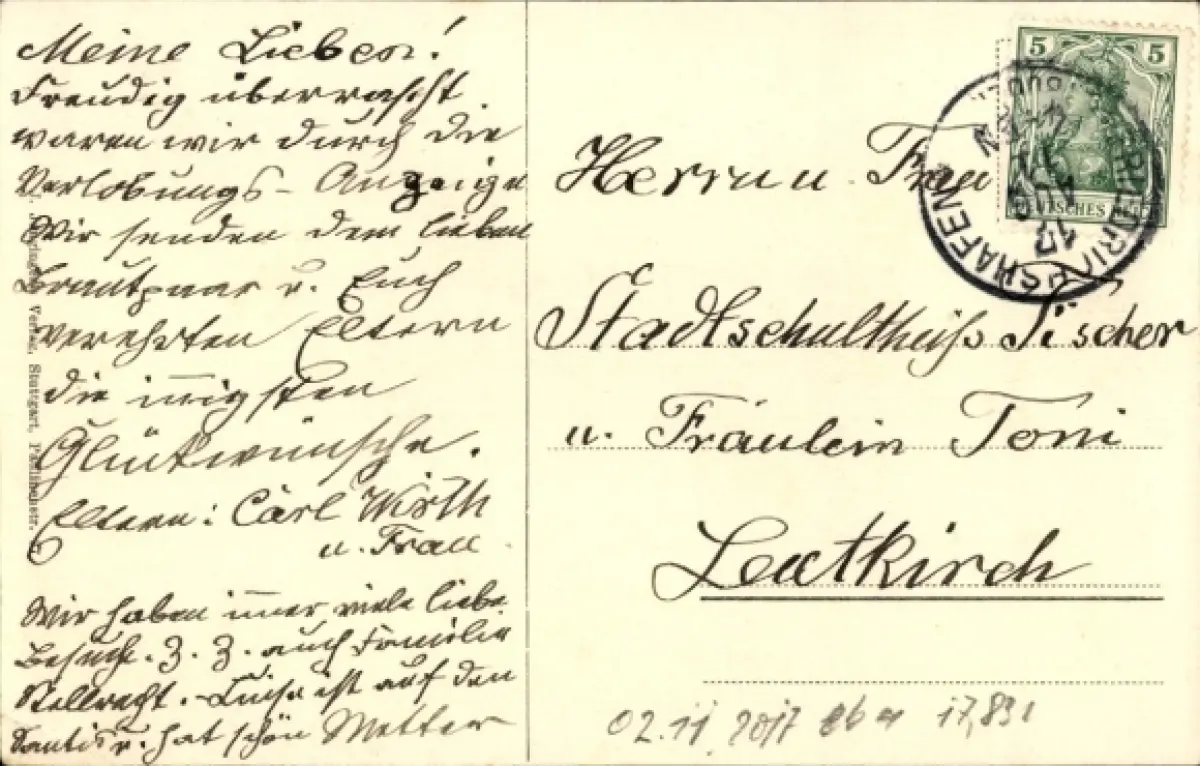 Meine Lieben!
Freudig überrascht
waren wir durch die
Verlobungs-Anzeige
Wir senden dem lieben
Brautpaar u. Euch
verehrten Eltern
die innigsten
Glückwünsche.
Eltern: Carl Wirth
u. Frau.
Wir haben immer viele liebe
Besuche. Z. Z. auch Familie
Stellrecht. - Luise ist auf den
Säntis u. hat schön Wetter
Verlag, Stuttgart,
5 5
DEUTSCHES
FRIEDRICHSHAFEN
Herrn u. Frau
Stadtschultheiß Fischer
u. Fräulein Toni
Leutkirch
02.11.2017 eba 17,89